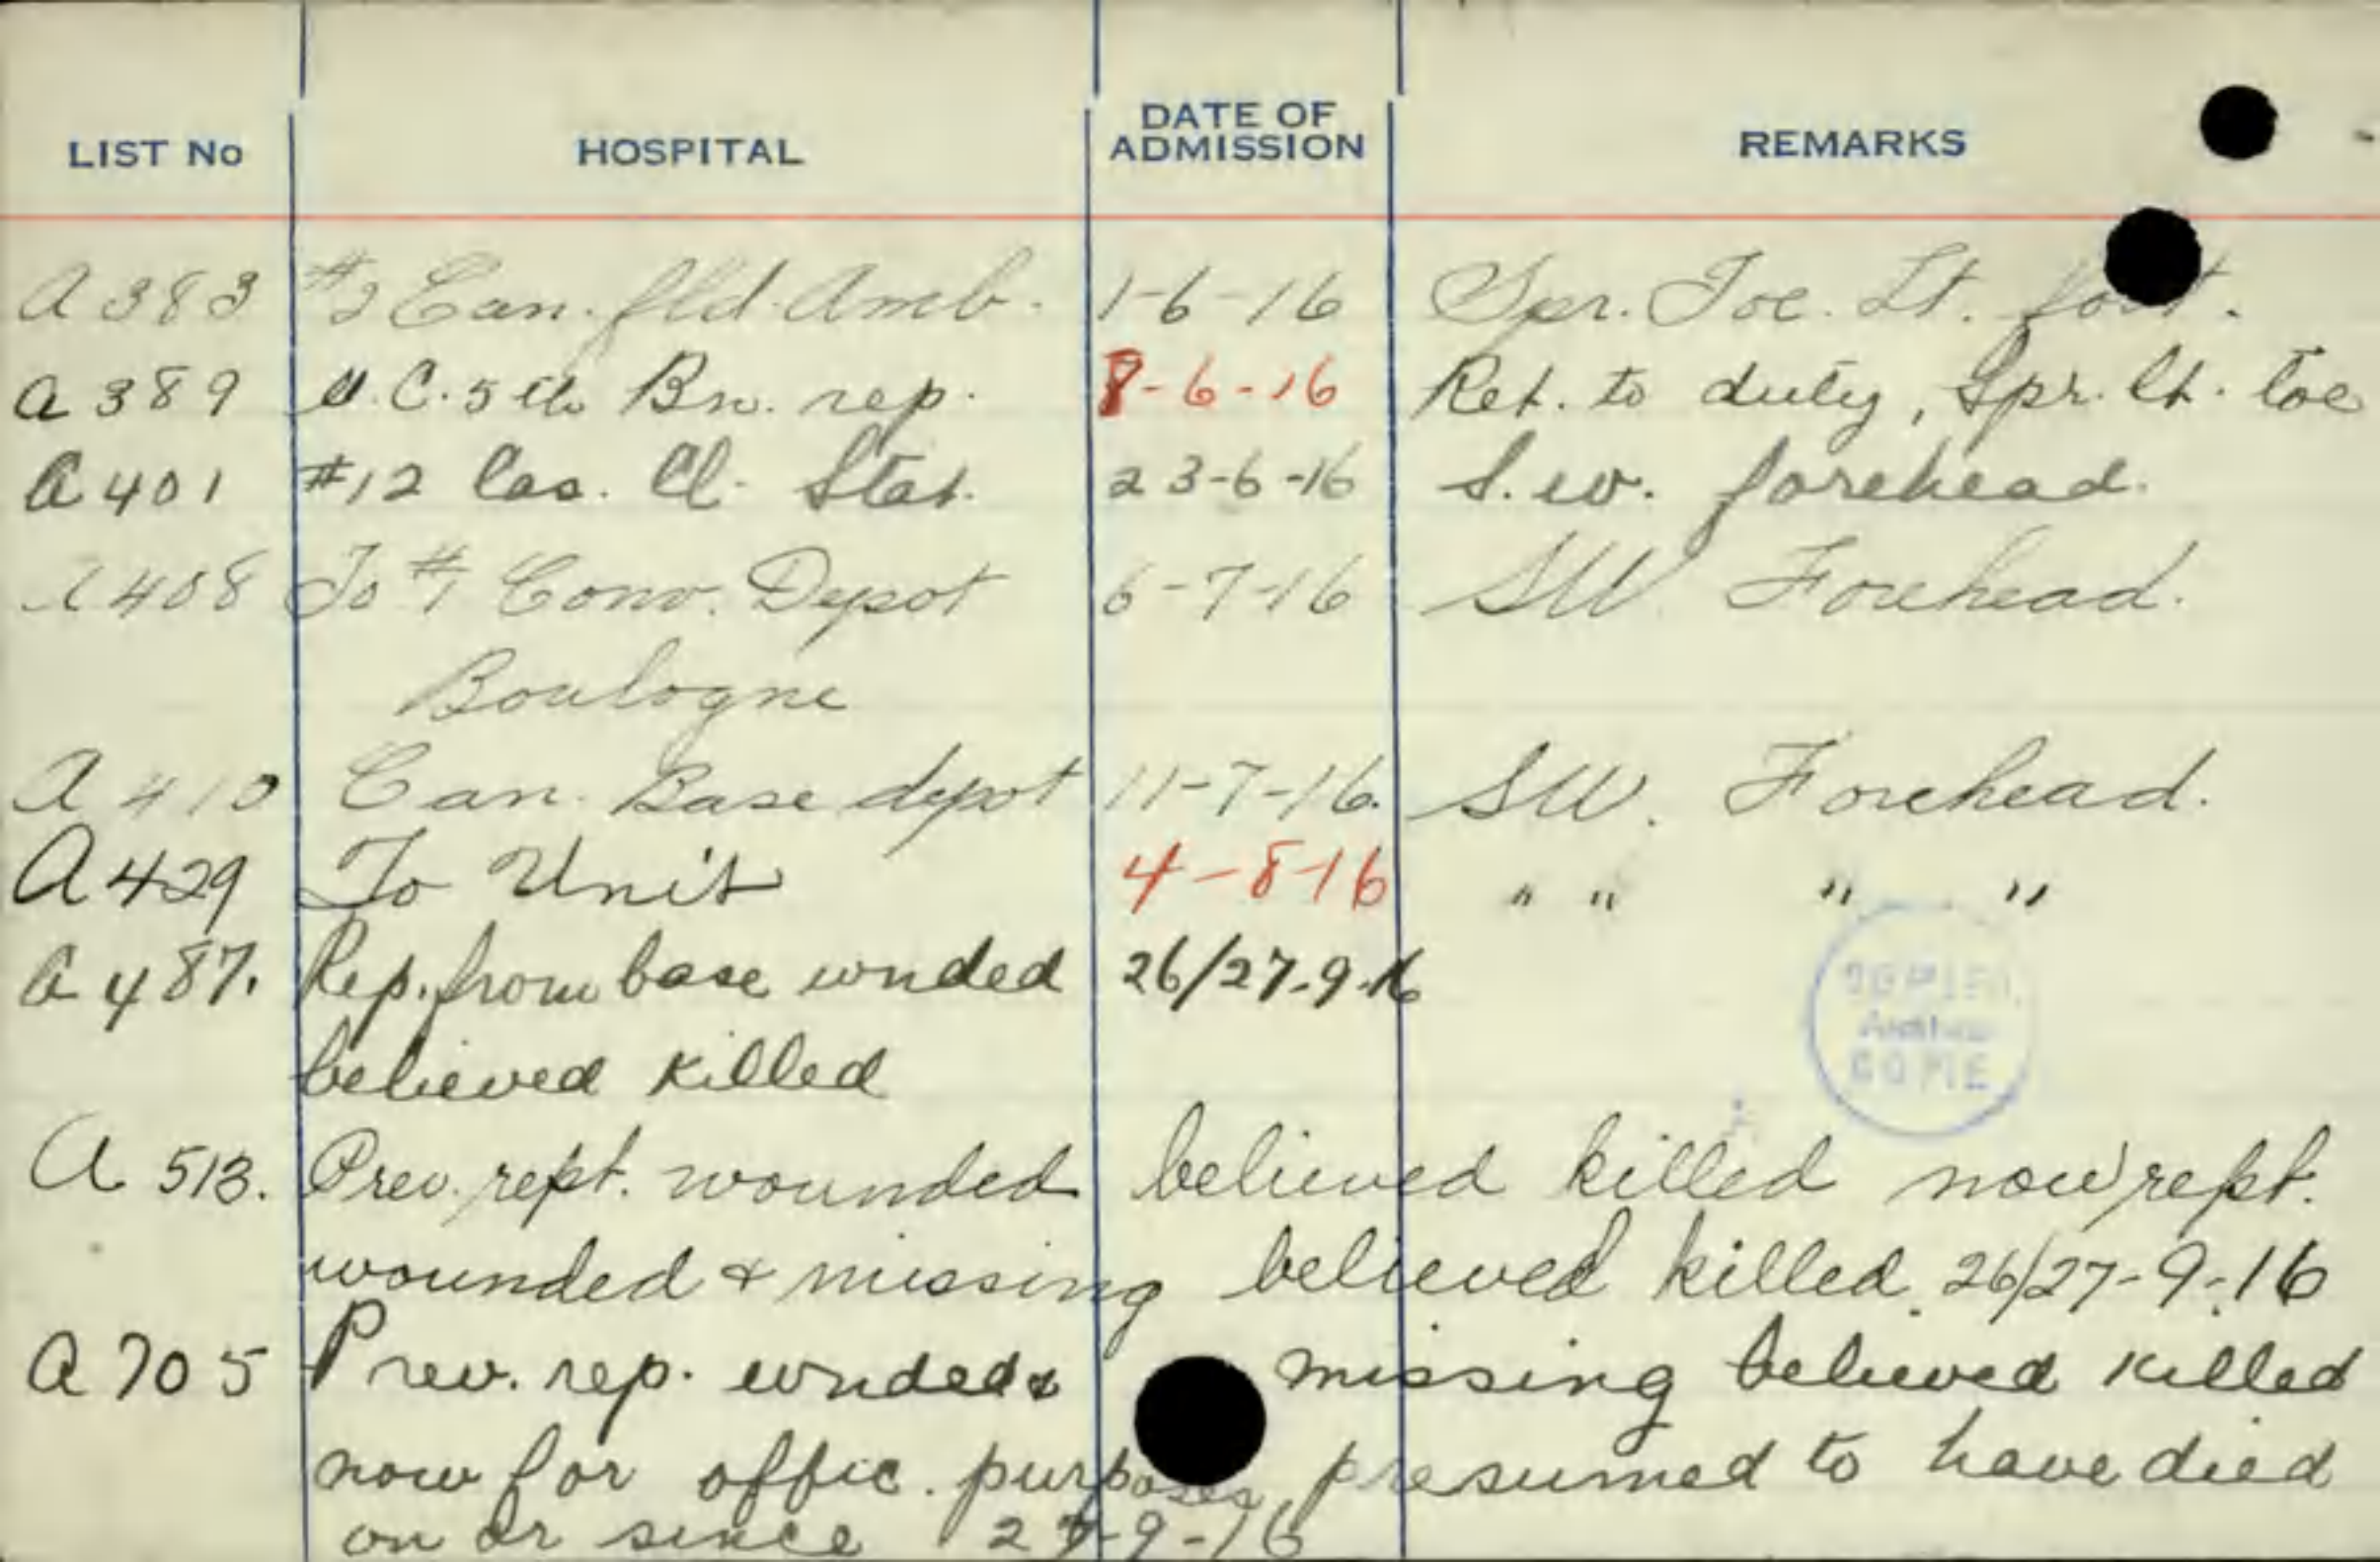 LIST No HOSPITAL DATE OF ADMISSION REMARKS
A 383 #2 Can. fld. Amb. 1-6-16 Spr. Toe. Lt. foot.
A 389 O.C. 5th Bn. rep. 8-6-16 Ret. to duty, Spr. lt. toe
A 401 #12 Cas. Cl. Stat. 23-6-16 S.w. forehead.
A 408 To #1 Conv. Depot 6-7-16 SW Forehead.
Boulogne
A 410 Can. Base depot 11-7-16. SW. Forehead.
A 429 To Unit 4-8-16 " " " "
A 487. Rep. from base wnded 26/27-9-16
believed killed
A 513. Prev. rept. wounded believed killed now rept.
wounded & missing believed killed. 26/27-9-16
A 705 Prev. rep. wnded & missing believed killed
now for offic. purposes, presumed to have died
on or since 27-9-16
COPIE